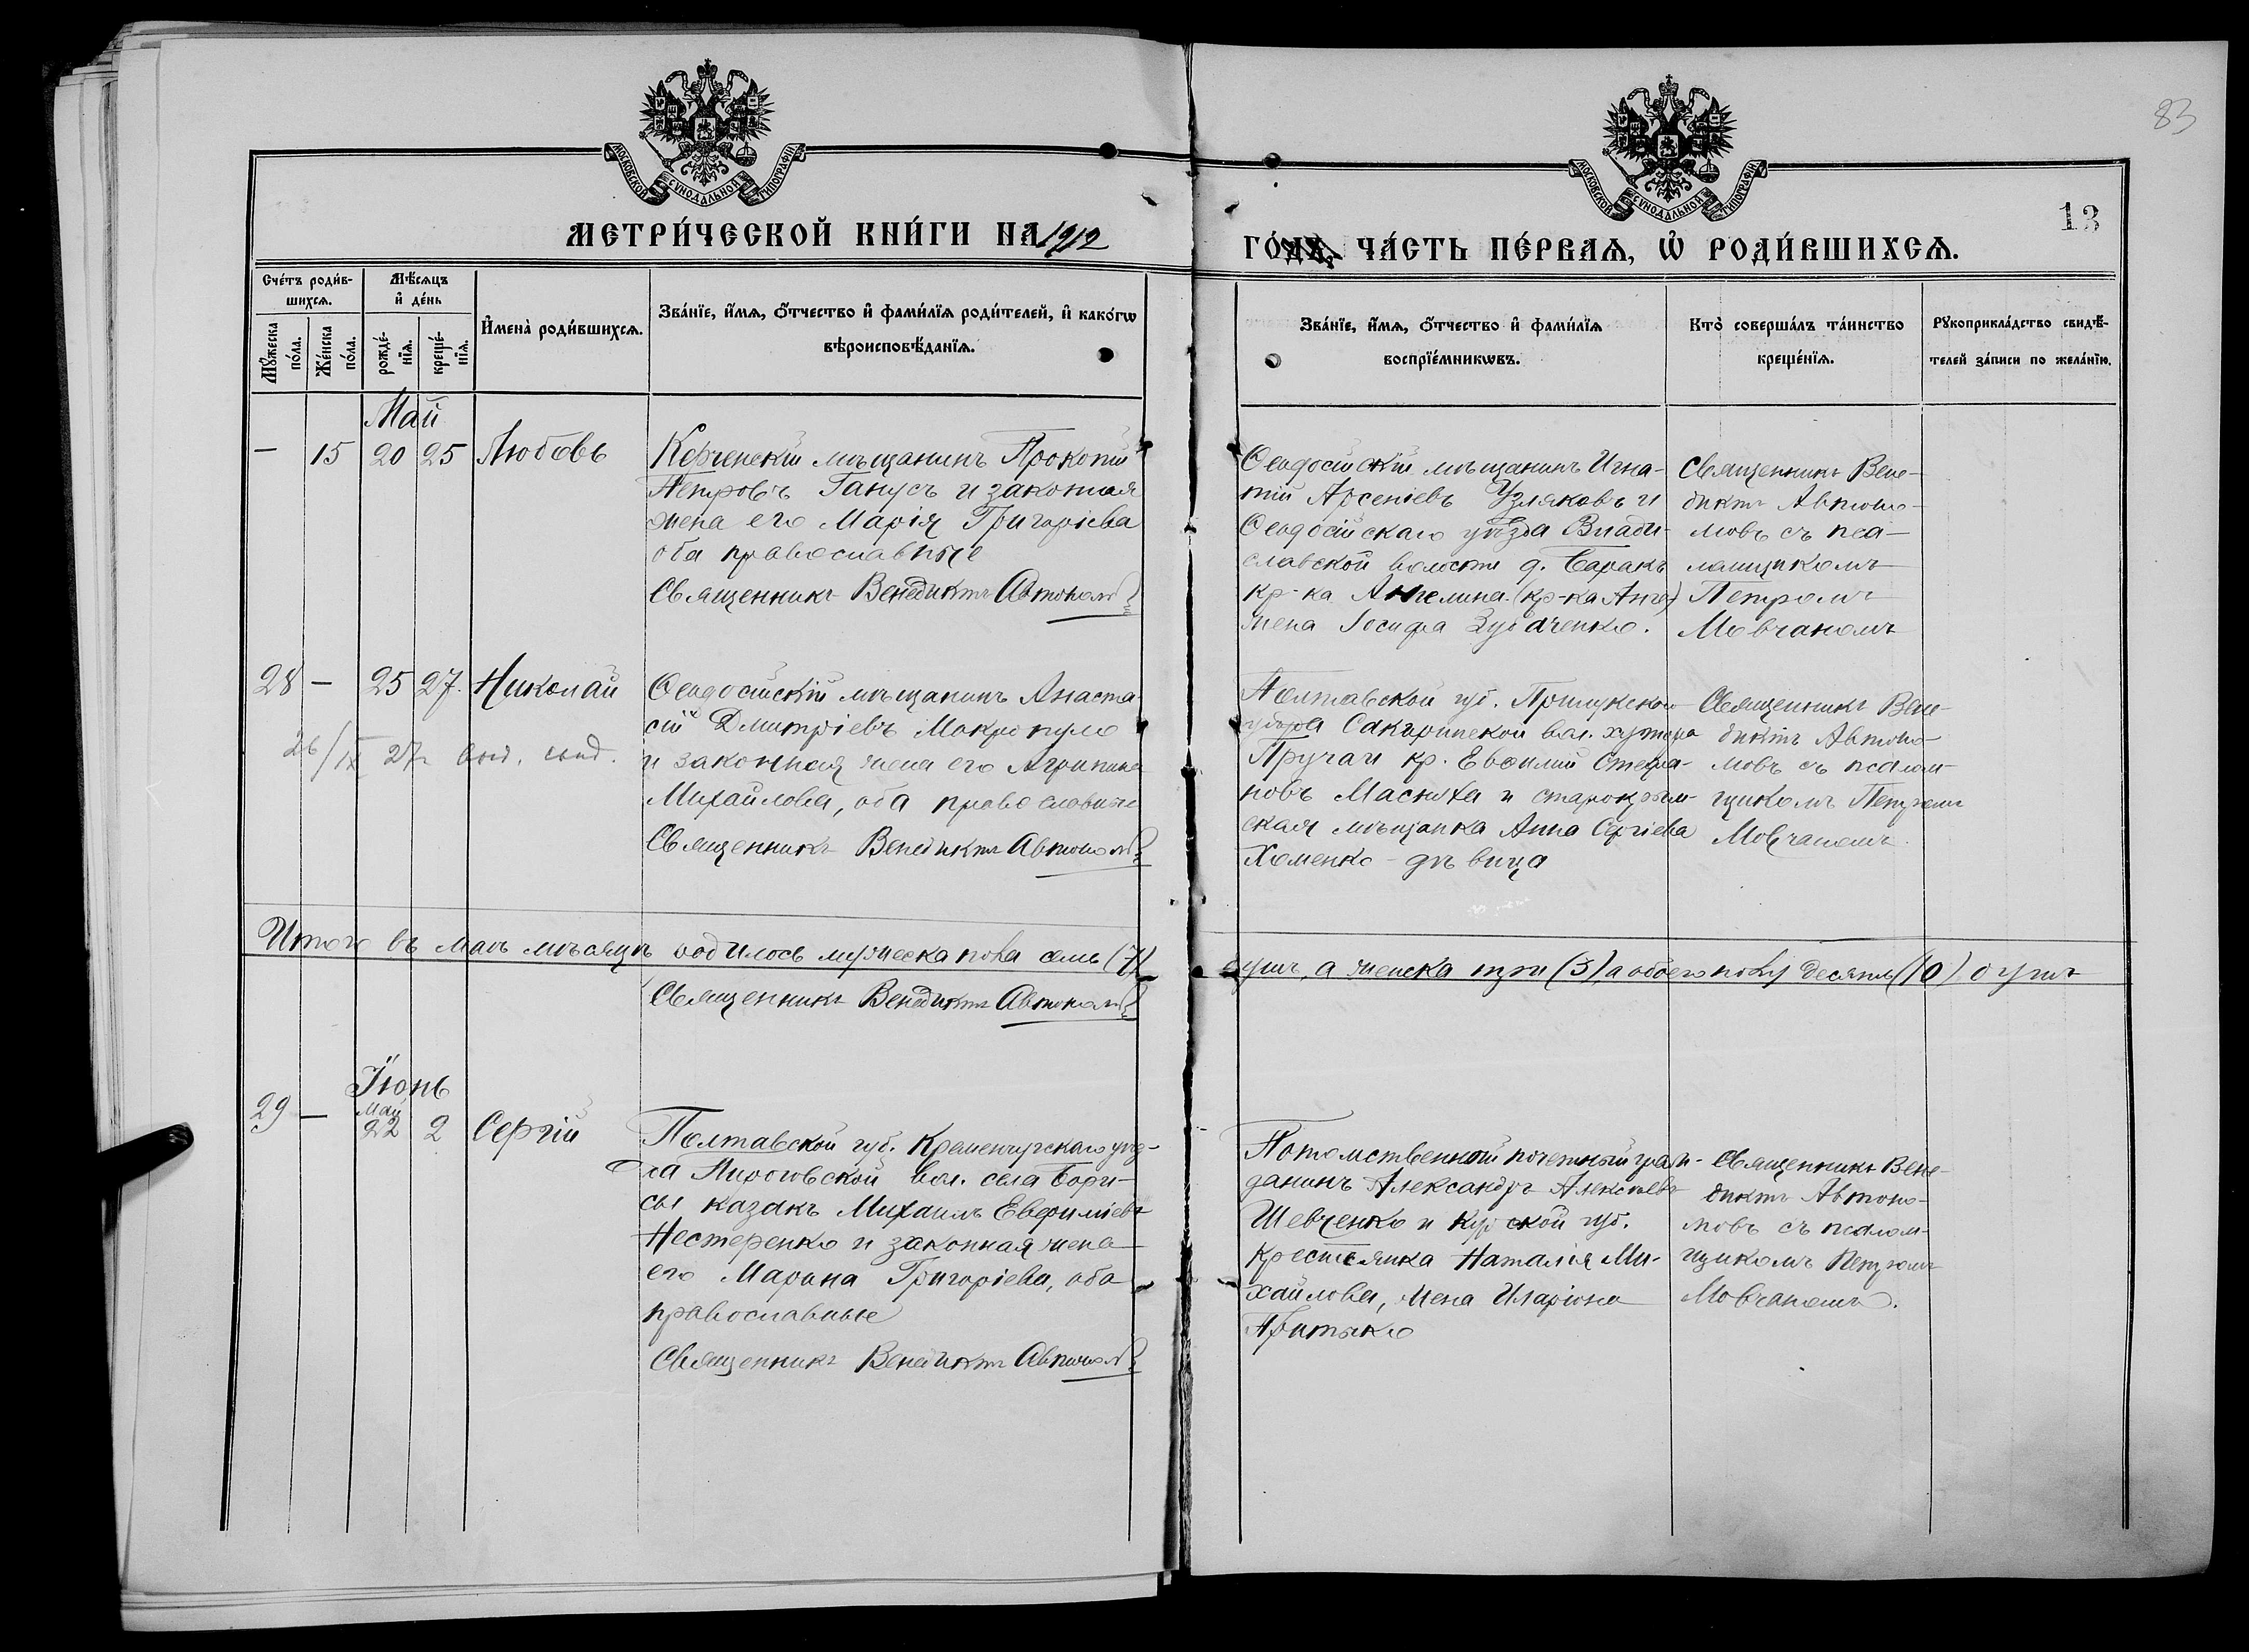 83
13
МОСКОВСКОЙ СУНОДАЛЬНОЙ ТИПОГРАФІИ
МОСКОВСКОЙ СУНОДАЛЬНОЙ ТИПОГРАФІИ
МЕТРИ́ЧЕСКОЙ КНИ́ГИ НА 1912
ГО́ДЪ, ЧА́СТЬ ПЕ́РВАѦ, Ѡ҆ РОДИ́ВШИХСѦ.
Сче́тъ роди́в-
шихсѧ.
Мѣ́сѧцъ
и҆ де́нь
Мꙋ́жеска по́ла.
Же́нска по́ла.
рожде́-
нїѧ.
креще́-
нїѧ.
И҆мена̀ роди́вшихсѧ.
Зва́нїе, и҆́мѧ, ѻ҆́тчество и҆ фами́лїѧ роди́телей, и҆ како́гѡ
вѣроисповѣ́данїѧ.
Зва́нїе, и҆́мѧ, ѻ҆́тчество и҆ фами́лїѧ
воспрїе́мникѡвъ.
Кто̀ соверша́лъ та́инство
креще́нїѧ.
Рꙋкоприкла́дство свидѣ́-
телей за́писи по жела́нїю.
Май
— 15 20 25 Любовь
Керченскій мѣщанинъ Прокопій
Петровъ Ганусъ и законная
жена его Марія Григоріева
оба православные
Священникъ Венедиктъ Автономовъ
Ѳеодосійскій мѣщанинъ Игна-
тій Арсеніевъ Узляковъ и
Ѳеодосійскаго уѣзда Влади-
славской волости д. Баракъ
кр-ка Ангелина (кр-ка Анге)
жена Іосифа Зубаченко.
Священникъ Вене-
диктъ Автоно-
мовъ съ псал-
омщикомъ
Петромъ
Мовчаномъ
28 — 25 27. Николай
26/IX 27 г выд. свид.
Ѳеодосійскій мѣщанинъ Анаста-
сій Дмитріевъ Макропуло
и законная жена его Агрипина
Михайлова, оба православные
Священникъ Венедиктъ Автономовъ
Полтавской губ. Прилукского
уѣзда вол. хутора
кр. Евфимій Стефа-
новъ и старокрым-
ская мѣщанка Анна Сергіева
Хоменко - дѣвица
Священникъ Вене-
диктъ Автоно-
мовъ съ псалом-
щикомъ Петромъ
Мовчаномъ.
Итого въ маѣ мѣсяцѣ родилось мужеска пола семь (7)
душъ, а женска три (3), а обоего полу десять (10) душъ
Священникъ Венедиктъ Автономовъ
Іюнь
29 — Май 22 2 Сергій
Полтавской губ. Кременчугскаго уѣз-
да вол. села Бори-
сы казакъ Михаилъ Евфиміевъ
Нестеренко и законная жена
его Марина Григоріева, оба
православные
Священникъ Венедиктъ Автономовъ
Потомственный почетный граж-
данинъ Александръ Алексѣевъ
Шевченко и Курской губ.
крестьянка Наталія Ми-
хайлова, жена Иларіона
Притыко
Священникъ Вене-
диктъ Автоно-
мовъ съ псалом-
щикомъ Петромъ
Мовчаномъ.